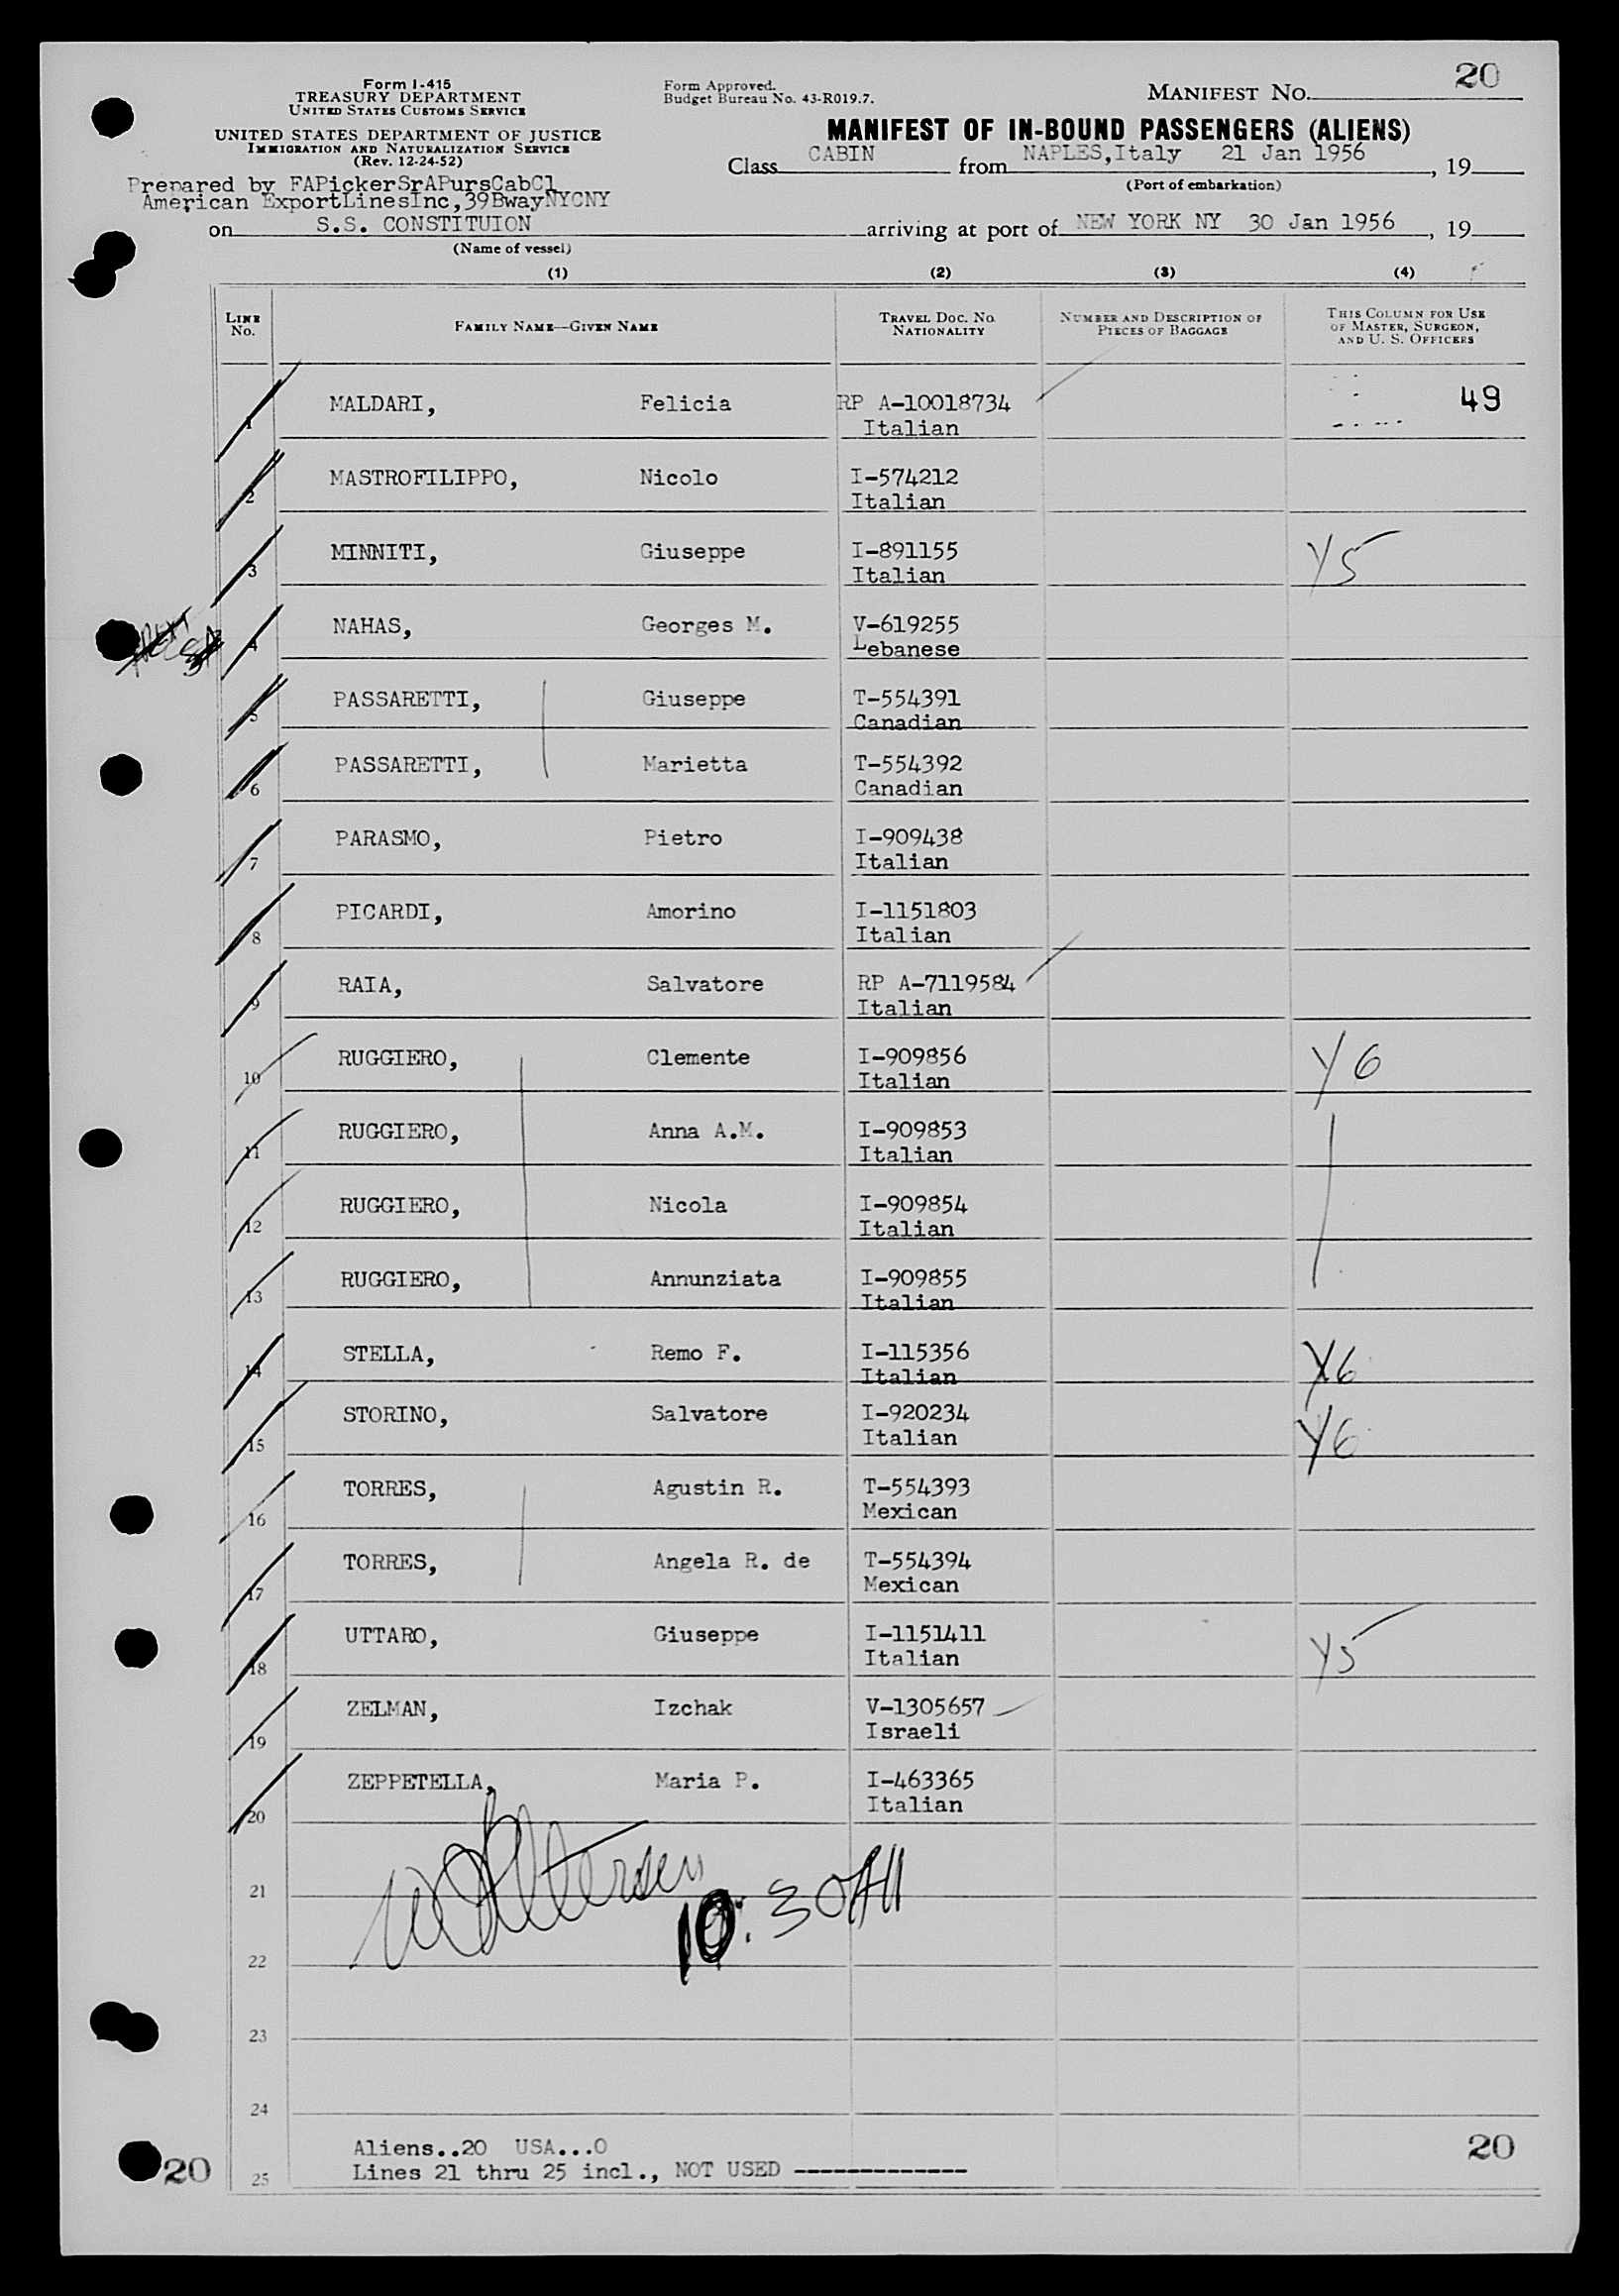 Form I-415
TREASURY DEPARTMENT
UNITED STATES CUSTOMS SERVICE
UNITED STATES DEPARTMENT OF JUSTICE
IMMIGRATION AND NATURALIZATION SERVICE
(Rev. 12-24-52)
Form Approved.
Budget Bureau No. 43-R019.7.
MANIFEST NO. 20
MANIFEST OF IN-BOUND PASSENGERS (ALIENS)
Class CABIN from NAPLES,Italy 21 Jan 1956, 19
(Port of embarkation)
Prepared by FAPickerSrAPursCabCl
American ExportLinesInc,39BwayNYCNY
on S.S. CONSTITUION arriving at port of NEW YORK NY 30 Jan 1956, 19
(Name of vessel)
(1) (2) (3) (4)
LINE No. FAMILY NAME—GIVEN NAME TRAVEL DOC. NO. NATIONALITY NUMBER AND DESCRIPTION OF PIECES OF BAGGAGE THIS COLUMN FOR USE OF MASTER, SURGEON, AND U. S. OFFICERS
1 MALDARI, Felicia RP A-10018734 49
Italian
2 MASTROFILIPPO, Nicolo I-574212
Italian
3 MINNITI, Giuseppe I-891155 Y5
Italian
4 NAHAS, Georges M. V-619255
Lebanese
5 PASSARETTI, Giuseppe T-554391
Canadian
6 PASSARETTI, Marietta T-554392
Canadian
7 PARASMO, Pietro I-909438
Italian
8 PICARDI, Amorino I-1151803
Italian
9 RAIA, Salvatore RP A-7119584
Italian
10 RUGGIERO, Clemente I-909856 Y6
Italian
11 RUGGIERO, Anna A.M. I-909853
Italian
12 RUGGIERO, Nicola I-909854
Italian
13 RUGGIERO, Annunziata I-909855
Italian
14 STELLA, Remo F. I-115356 Y6
Italian
15 STORINO, Salvatore I-920234 Y6
Italian
16 TORRES, Agustin R. T-554393
Mexican
17 TORRES, Angela R. de T-554394
Mexican
18 UTTARO, Giuseppe I-1151411 Y5
Italian
19 ZELMAN, Izchak V-1305657
Israeli
20 ZEPPETELLA, Maria P. I-463365
Italian
21 10:30AM
22
23
24
Aliens..20 USA...0 20
20 25 Lines 21 thru 25 incl., NOT USED -------------